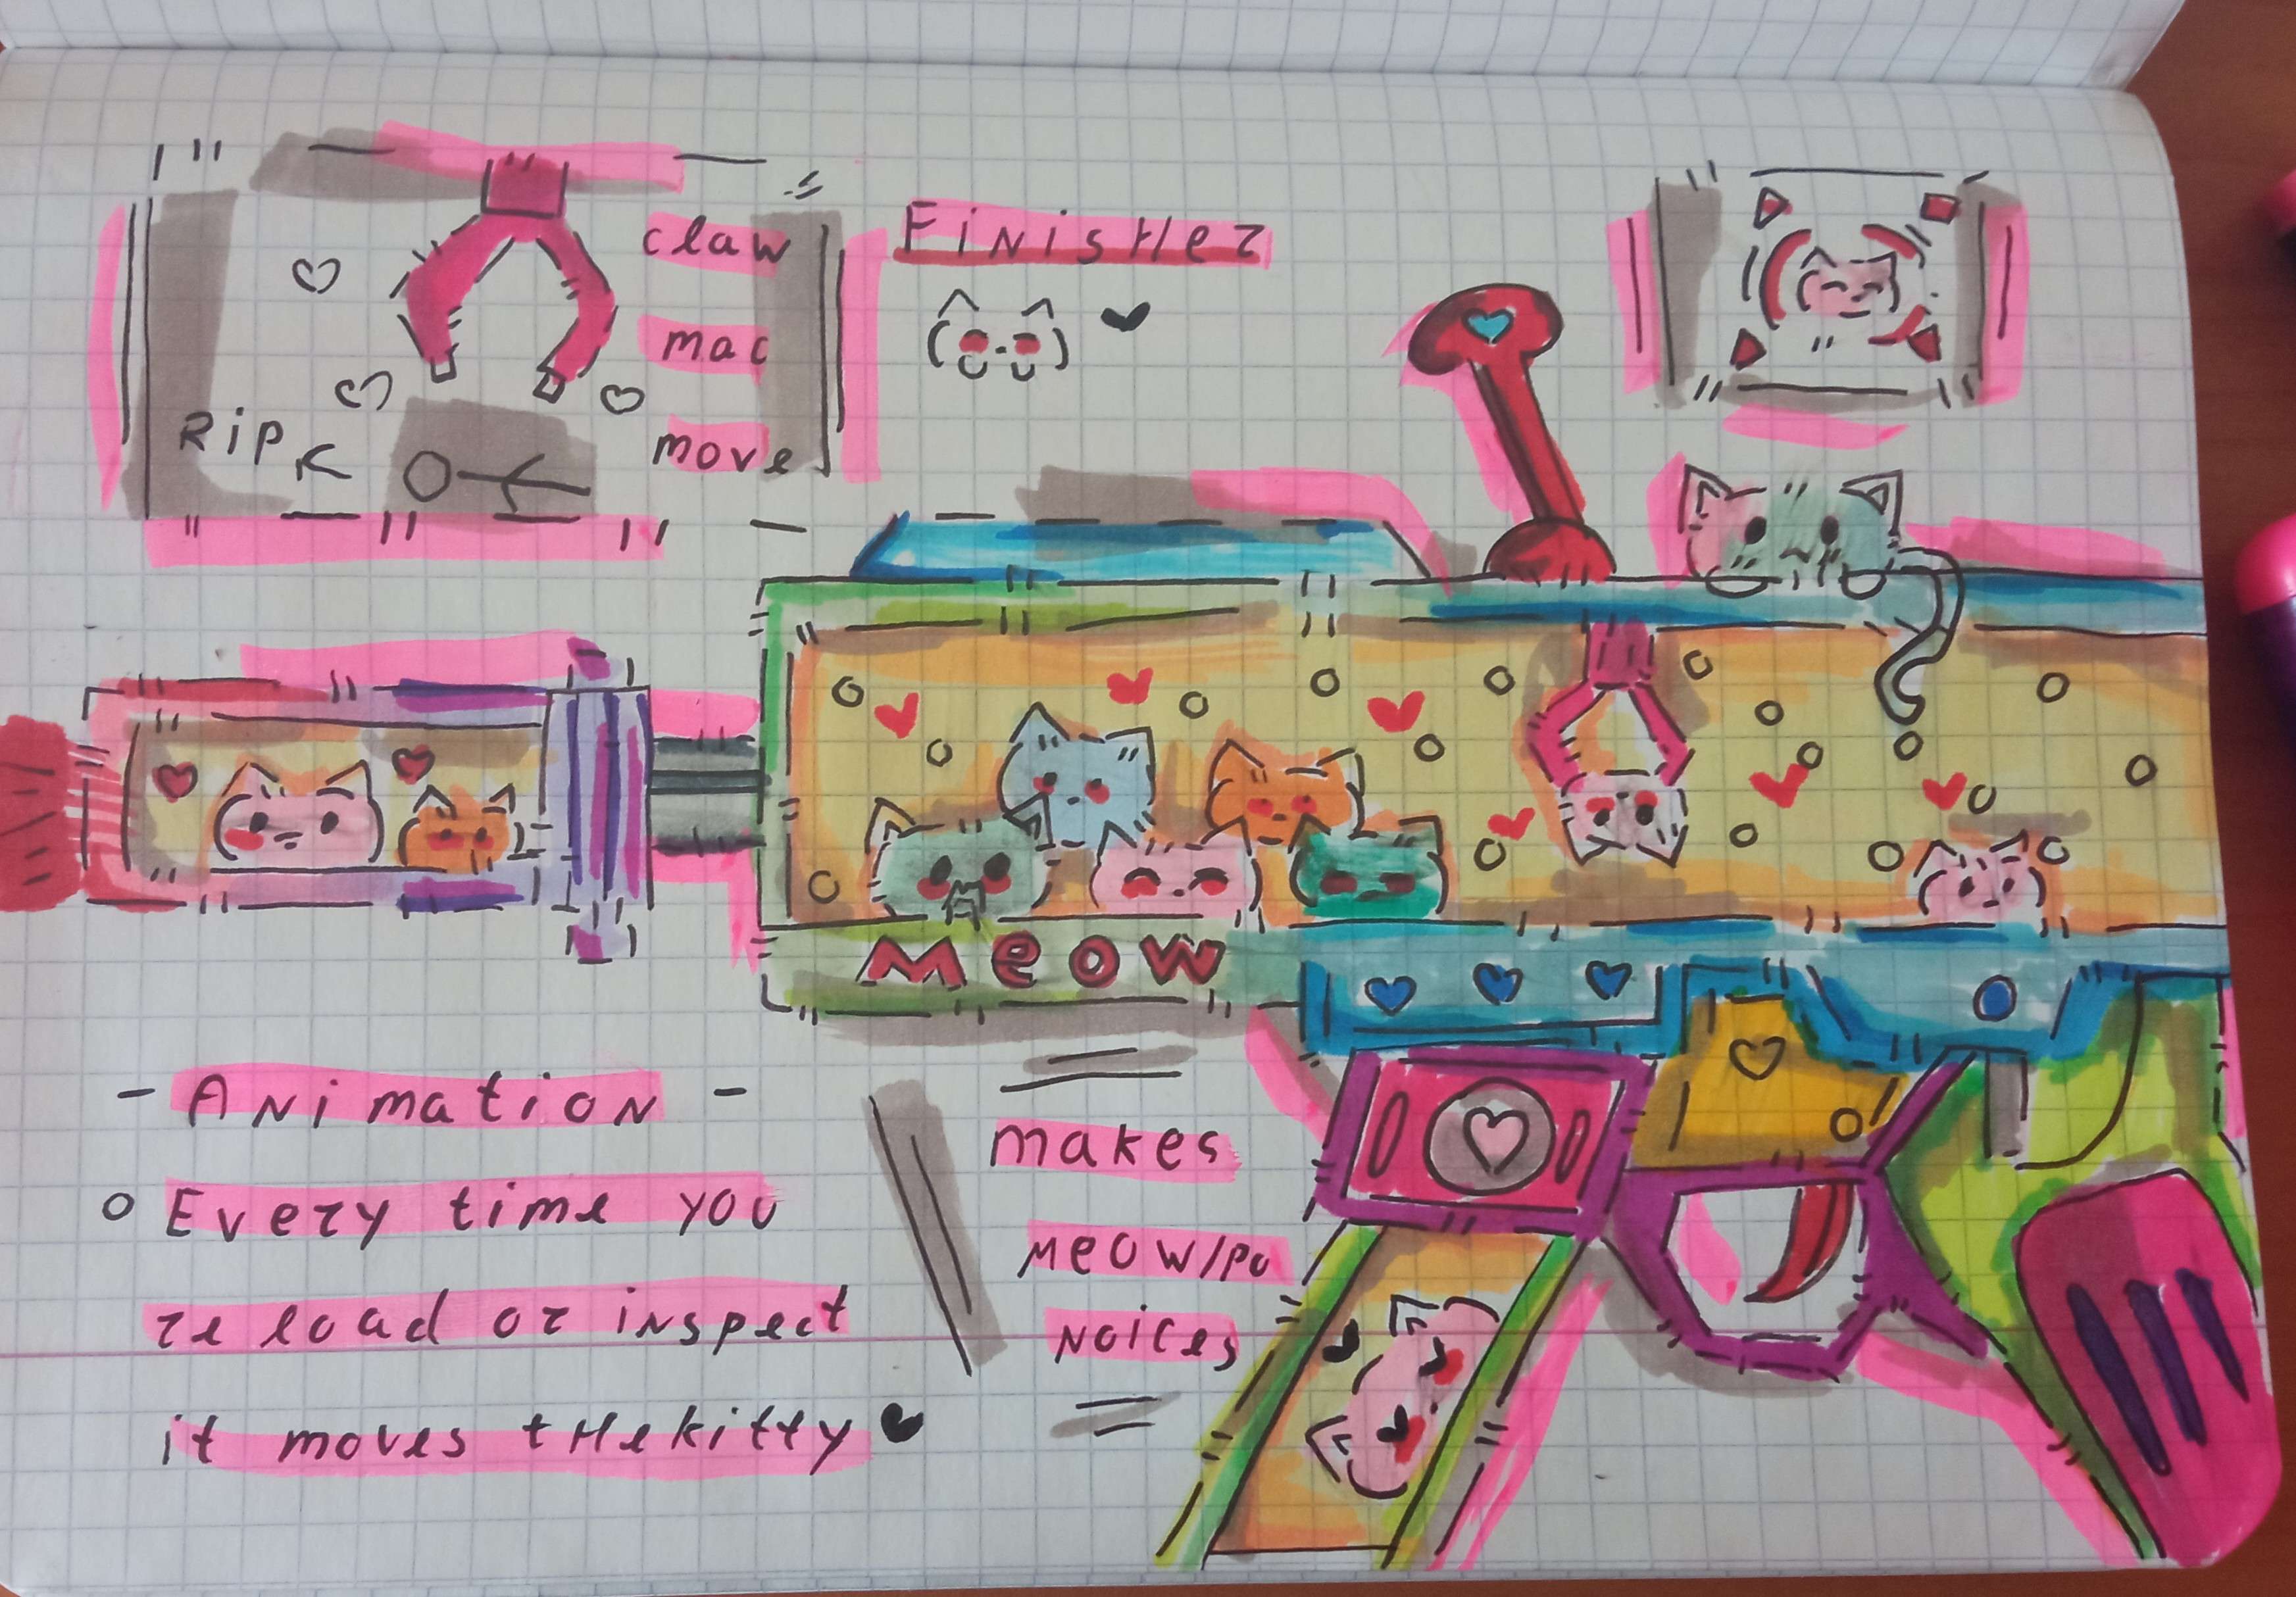 claw
mac
move
RiP
FiNisHer
MeOW
- ANimatiON -
Every time you
reload or inspect
it moves tHe kitty
makes
Meow/Pu
Noices